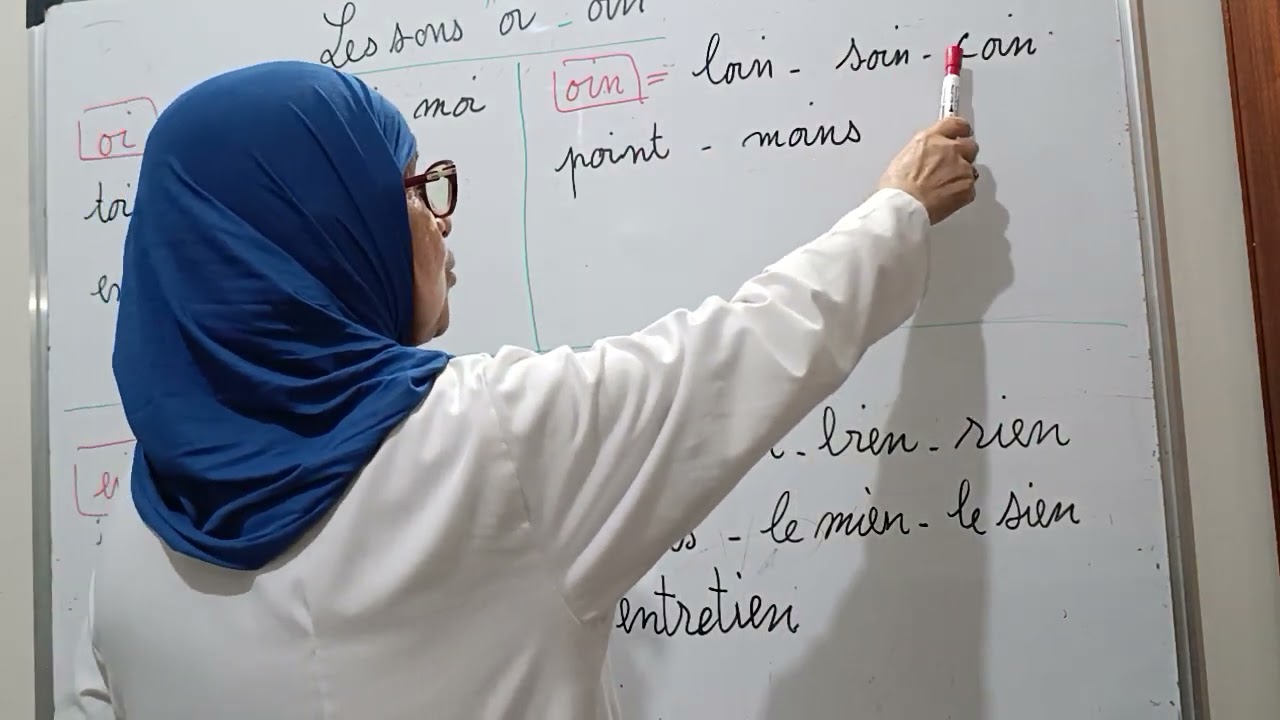 Les sons oi - oin
oi moi
toi
oin = loin - soin - coin
point - moins
bien - rien
- le mien - le sien
entretien